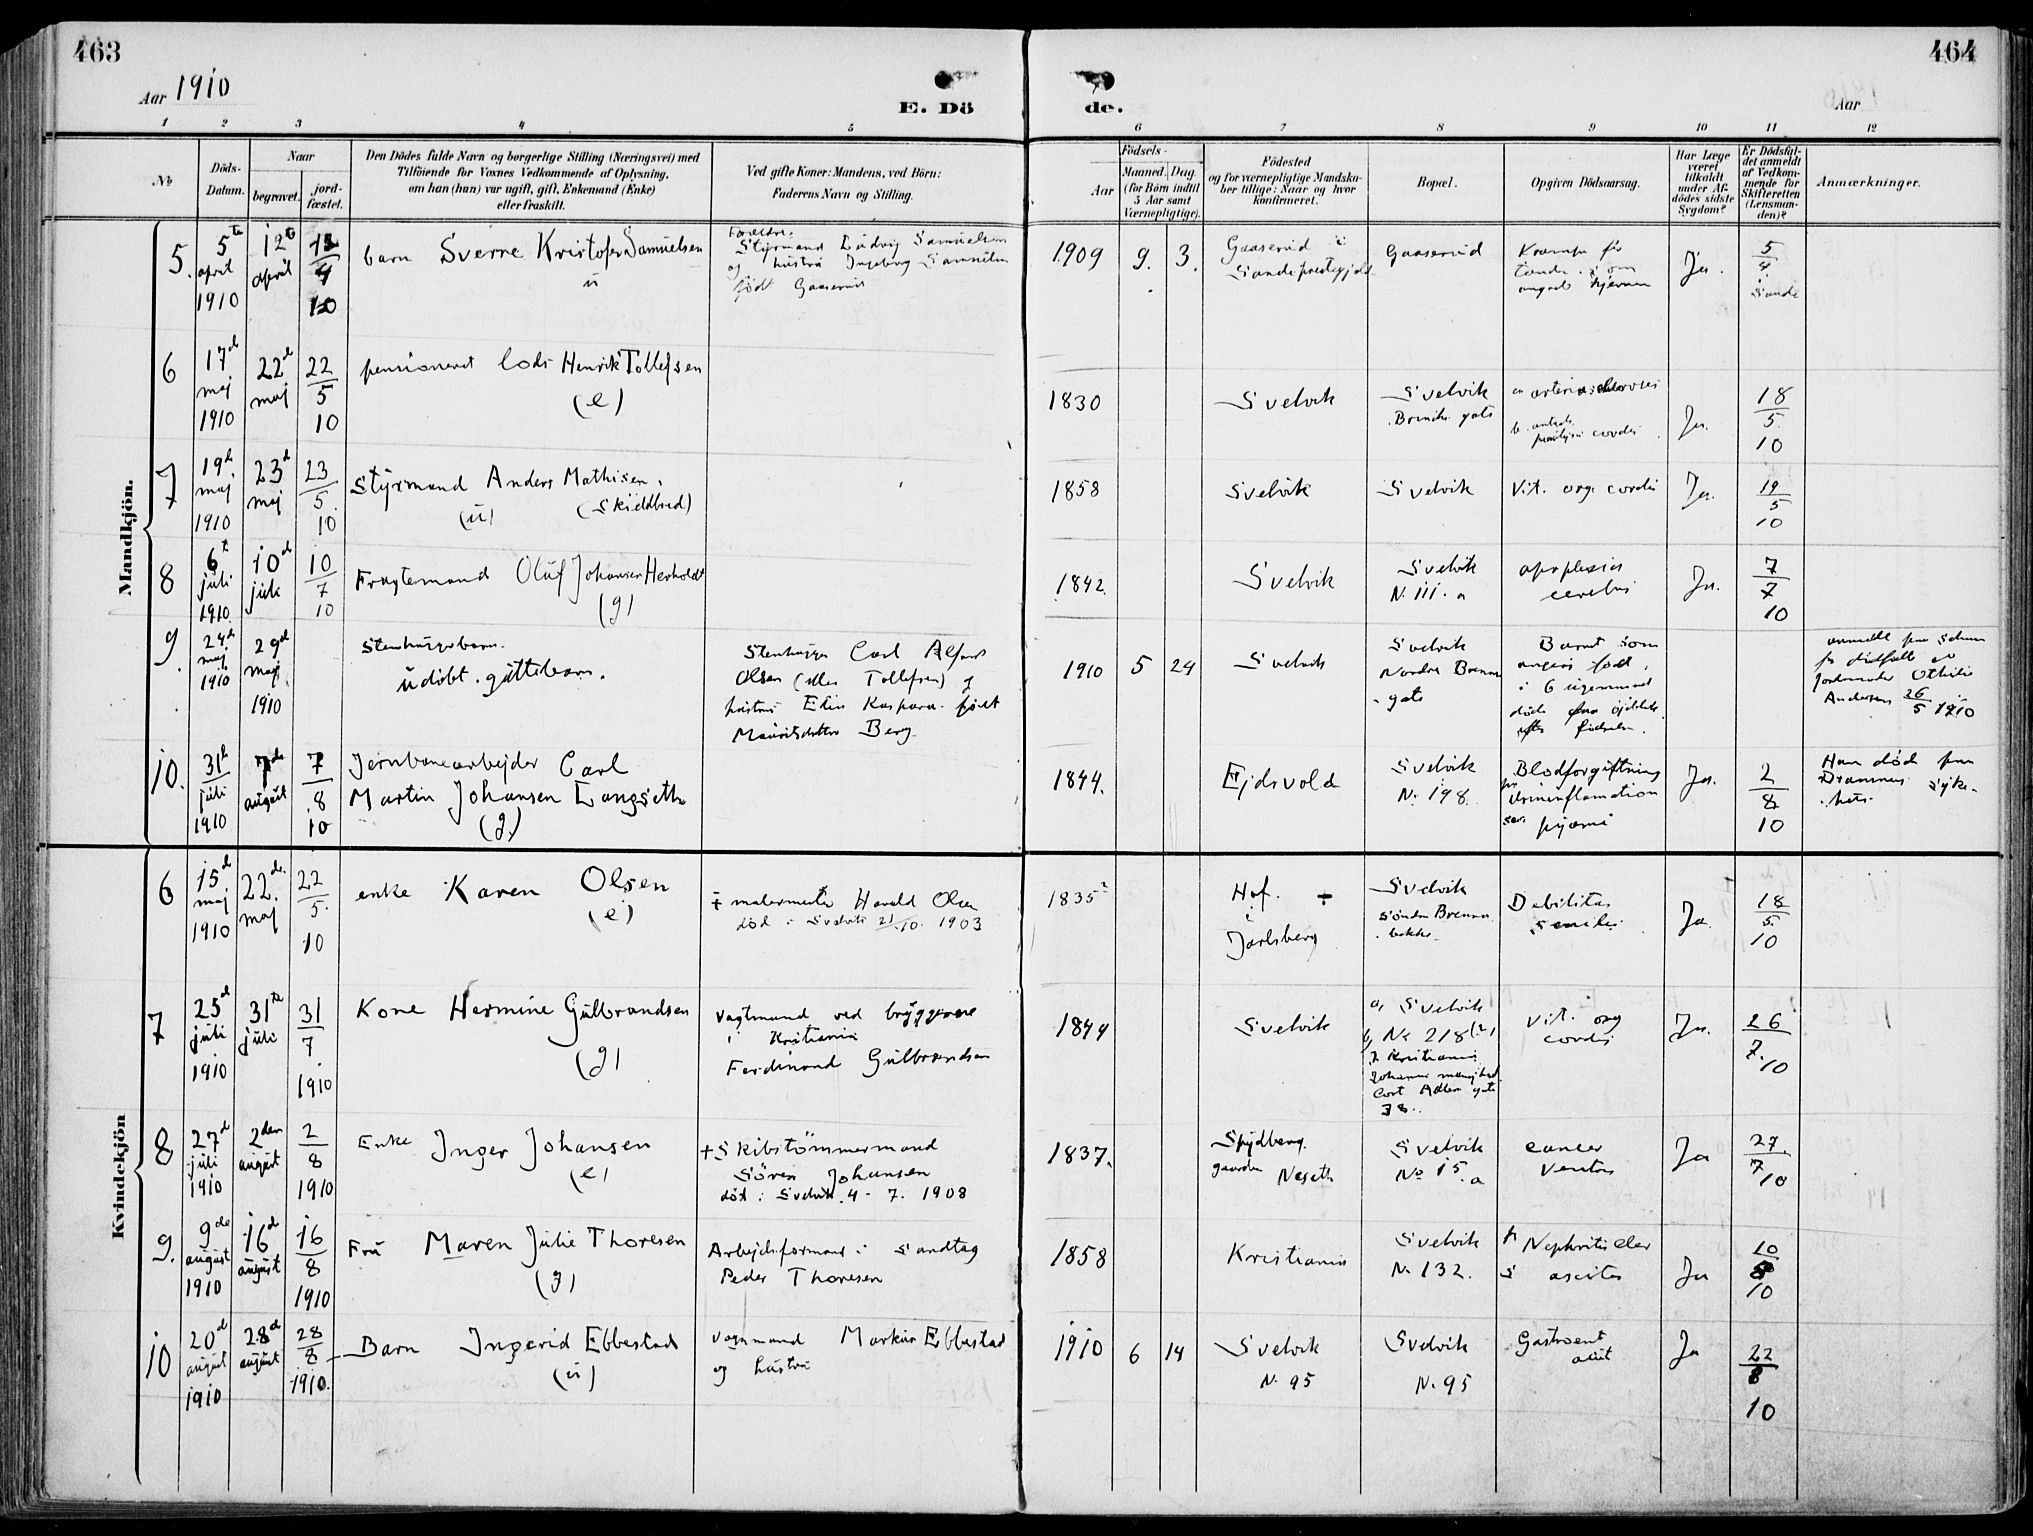 463
464
Aar 1910
E. Döde.
Aar
1 2 3 4 5 6 7 8 9 10 11 12
No
Döds-Datum.
Naar
begravet.
jord-fæstet.
Den Dödes fulde Navn og borgerlige Stilling (Næringsvei) med
Tilföiende for Voxnes Vedkommende af Oplysning,
om han (hun) var ugift, gift, Enkemand (Enke)
eller fraskilt.
Ved gifte Koner: Mandens, ved Börn:
Faderens Navn og Stilling.
Födsels-
Aar
Maaned. Dag
(for Börn indtil
5 Aar samt
Værnepligtige).
Födested
og for værnepligtige Mandska-
ber tillige: Naar og hvor
konfirmeret.
Bopæl.
Opgiven Dödsaarsag.
Har Læge
været
tilkaldt
under Af-
dödes sidste
Sygdom?
Er Dödsfal-
det anmeldt
af Vedkom-
mende for
Skifteretten
(Lensman-
den)?
Anmærkninger.
Mandkjön.
5. 5te april 1910
12te april
12/4 10
barn Sverre Kristofer Samuelsen
u
Forældre:
Styrmand Ludvig Samuelsen
og hustru Ingeborg Samuelsen
født Gaaserud
1909 9. 3.
Gaaserud i
Sande prestegjeld
Gaaserud
Ja.
5/4
Sande
6 17de maj 1910
22de maj
22/5 10
pensioneret lods Henrik Tollefsen
(e)
1830
Svelvik
Svelvik
gate
cordis
Ja.
18/5 10
7 19de maj 1910
23de maj
23/5 10
Styrmand Anders Mathisen.
(u)
1858
Svelvik
Svelvik
Vit. org. cordis
Ja.
19/5 10
8 6te juli 1910
10de juli
10/7 10
Fragtemand Oluf Johansen Herholdt
(g)
1842.
Svelvik
Svelvik
N. 111. a
apoplexia
cerebri
Ja.
7/7 10
9. 24de maj 1910
29de maj 1910
Stenhuggerbarn.
udøbt guttebarn.
Stenhugger Carl Alfred
Olsen (eller Tollefsen) og
hustru Elin Kaspara født
Mauritsdatter Berg
1910 5 24
Svelvik
Svelvik
Nordre Brenna
gate
Barnet som
angives født
i 6
døde
efter fødselen.
Jordmoder Othilie
Andersen 26/5 1910
10. 31te juli 1910
7de august
7/8 10
Jernbanearbejder Carl
Martin Johansen Langseth
(g)
1844.
Ejdsvold
Svelvik
No. 198.
Blodforgiftning
Urininflamation
pyæmi
Ja.
2/8 10
Han død paa
Drammens syke-
hus.
Kvindekjön
6 15de maj 1910
22de maj
22/5 10
enke Karen Olsen
(e)
malermester Harald Olsen
død i Svelvik 21/10 1903
1835
Hof.
i
Jarlsberg
Svelvik
søndre Brenna
bakke
Debilitas
senilis
Ja.
18/5 10
7 25de juli 1910
31te juli
31/7 1910
Kone Hermine Gulbrandsen
(g)
Vagtmand ved bryggerne
i Kristiania
Ferdinand Gulbrandsen
1844
Svelvik
a, Svelvik
No 218
Kristiania
Cort Adlers gate
Vit. org
cordis
Ja.
26/7 10
8 27de juli 1910
2den august
2/8 1910
Enke Inger Johansen
(e)
+ Skibstömmermand
Sören Johansen
død i Svelvik 4 - 7. 1908
1837.
Spydberg.
gaarden Neseth
Svelvik
No 15. a
cancer
ventris
Ja
27/7 10
9. 9de august 1910
16de august
16/8 1910
Fru Maren Julie Thoresen
(g)
Arbejdsformand i Sandtag
Peder Thoresen
1858
Kristiania
Svelvik
N. 132.
Nephritis
ascites
Ja
10/8 10
10 20de august 1910
28de august
28/8 1910.
Barn Ingerid Ebbestad
(u)
Vognmand Markus Ebbestad
og hustru
1910 6 14
Svelvik
N. 95
Svelvik
N. 95
Gastroent
acut
Ja
22/8 10